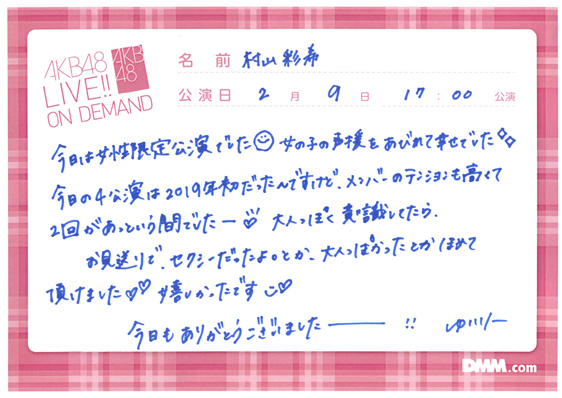 AKB48
LIVE!!
ON DEMAND
AKB
48
名前 村山彩希
公演日 2月 9日 17:00 公演
今日は女性限定公演でした 女の子の声援をあびれて幸せでした
今日の4公演は2019年初だったんですけど、メンバーのテンションも高くて
2回があっという間でしたー♡ 大人っぽく意識してたら、
お見送りで、セクシーだったよ。とか、大人っぽかったとかほめて
頂けました♡♡ 嬉しかったです ♡
今日もありがとうございました——— !! ゆいりー
DMM.com